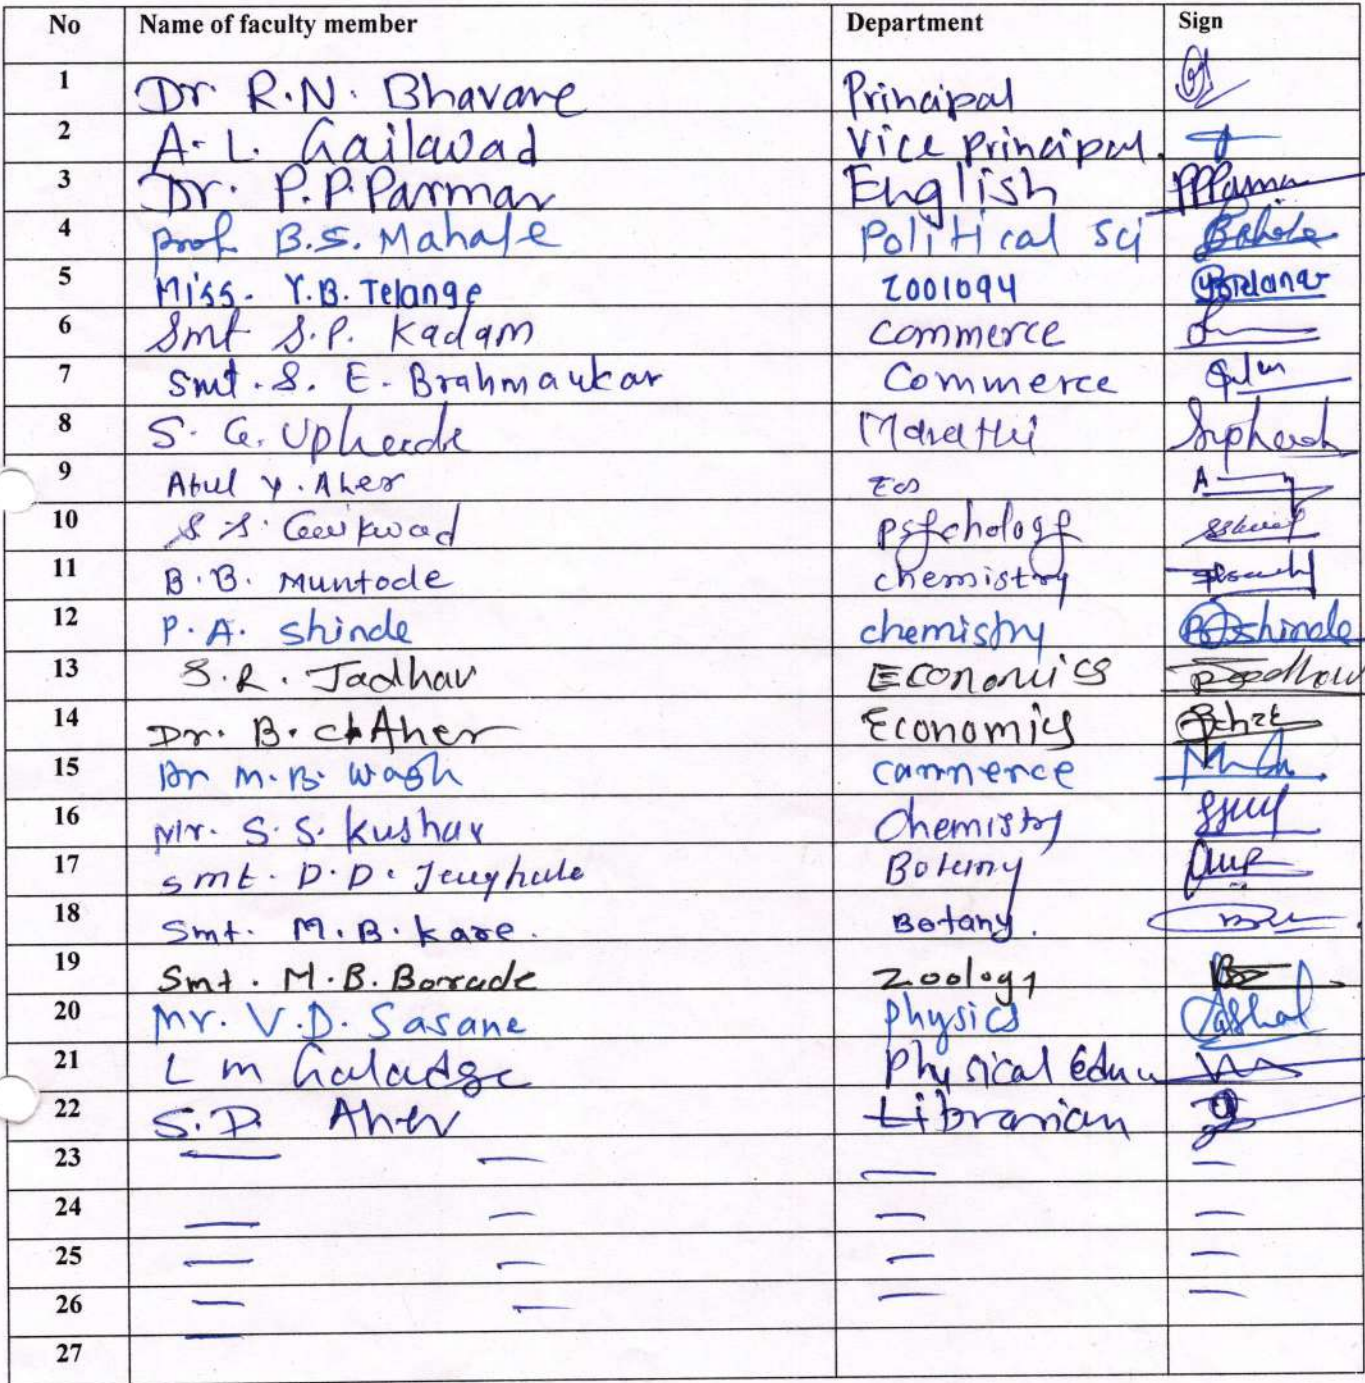 No Name of faculty member Department Sign
1 Dr R.N. Bhavare Principal
2 A. L. Gaikwad Vice principal.
3 Dr. P.P. Parmar English PPParmar
4 Prof B.S. Mahale Political Sci
5 Miss. Y.B. Telange Zoology
6 Smt S.P. Kadam commerce
7 Smt. S. E. Brahmankar Commerce
8 S. G. Uphade Marathi
9 Atul Y. Aher
10 S S. Gaikwad psychology
11 B.B. Muntode chemistry
12 P.A. Shinde chemistry PAshinde
13 S.R. Jadhav Economics
14 Dr. B. Ch Aher Economics
15 Dr M.B. Wagh commerce
16 Mr. S.S. Kushar Chemistry
17 Smt. D.D. Botany
18 Smt. M.B. Kare. Botany.
19 Smt. M.B. Borade Zoology
20 Mr. V.D. Sasane Physics
21 L M Physical Edu
22 S.D. Aher Librarian
23
24
25
26
27